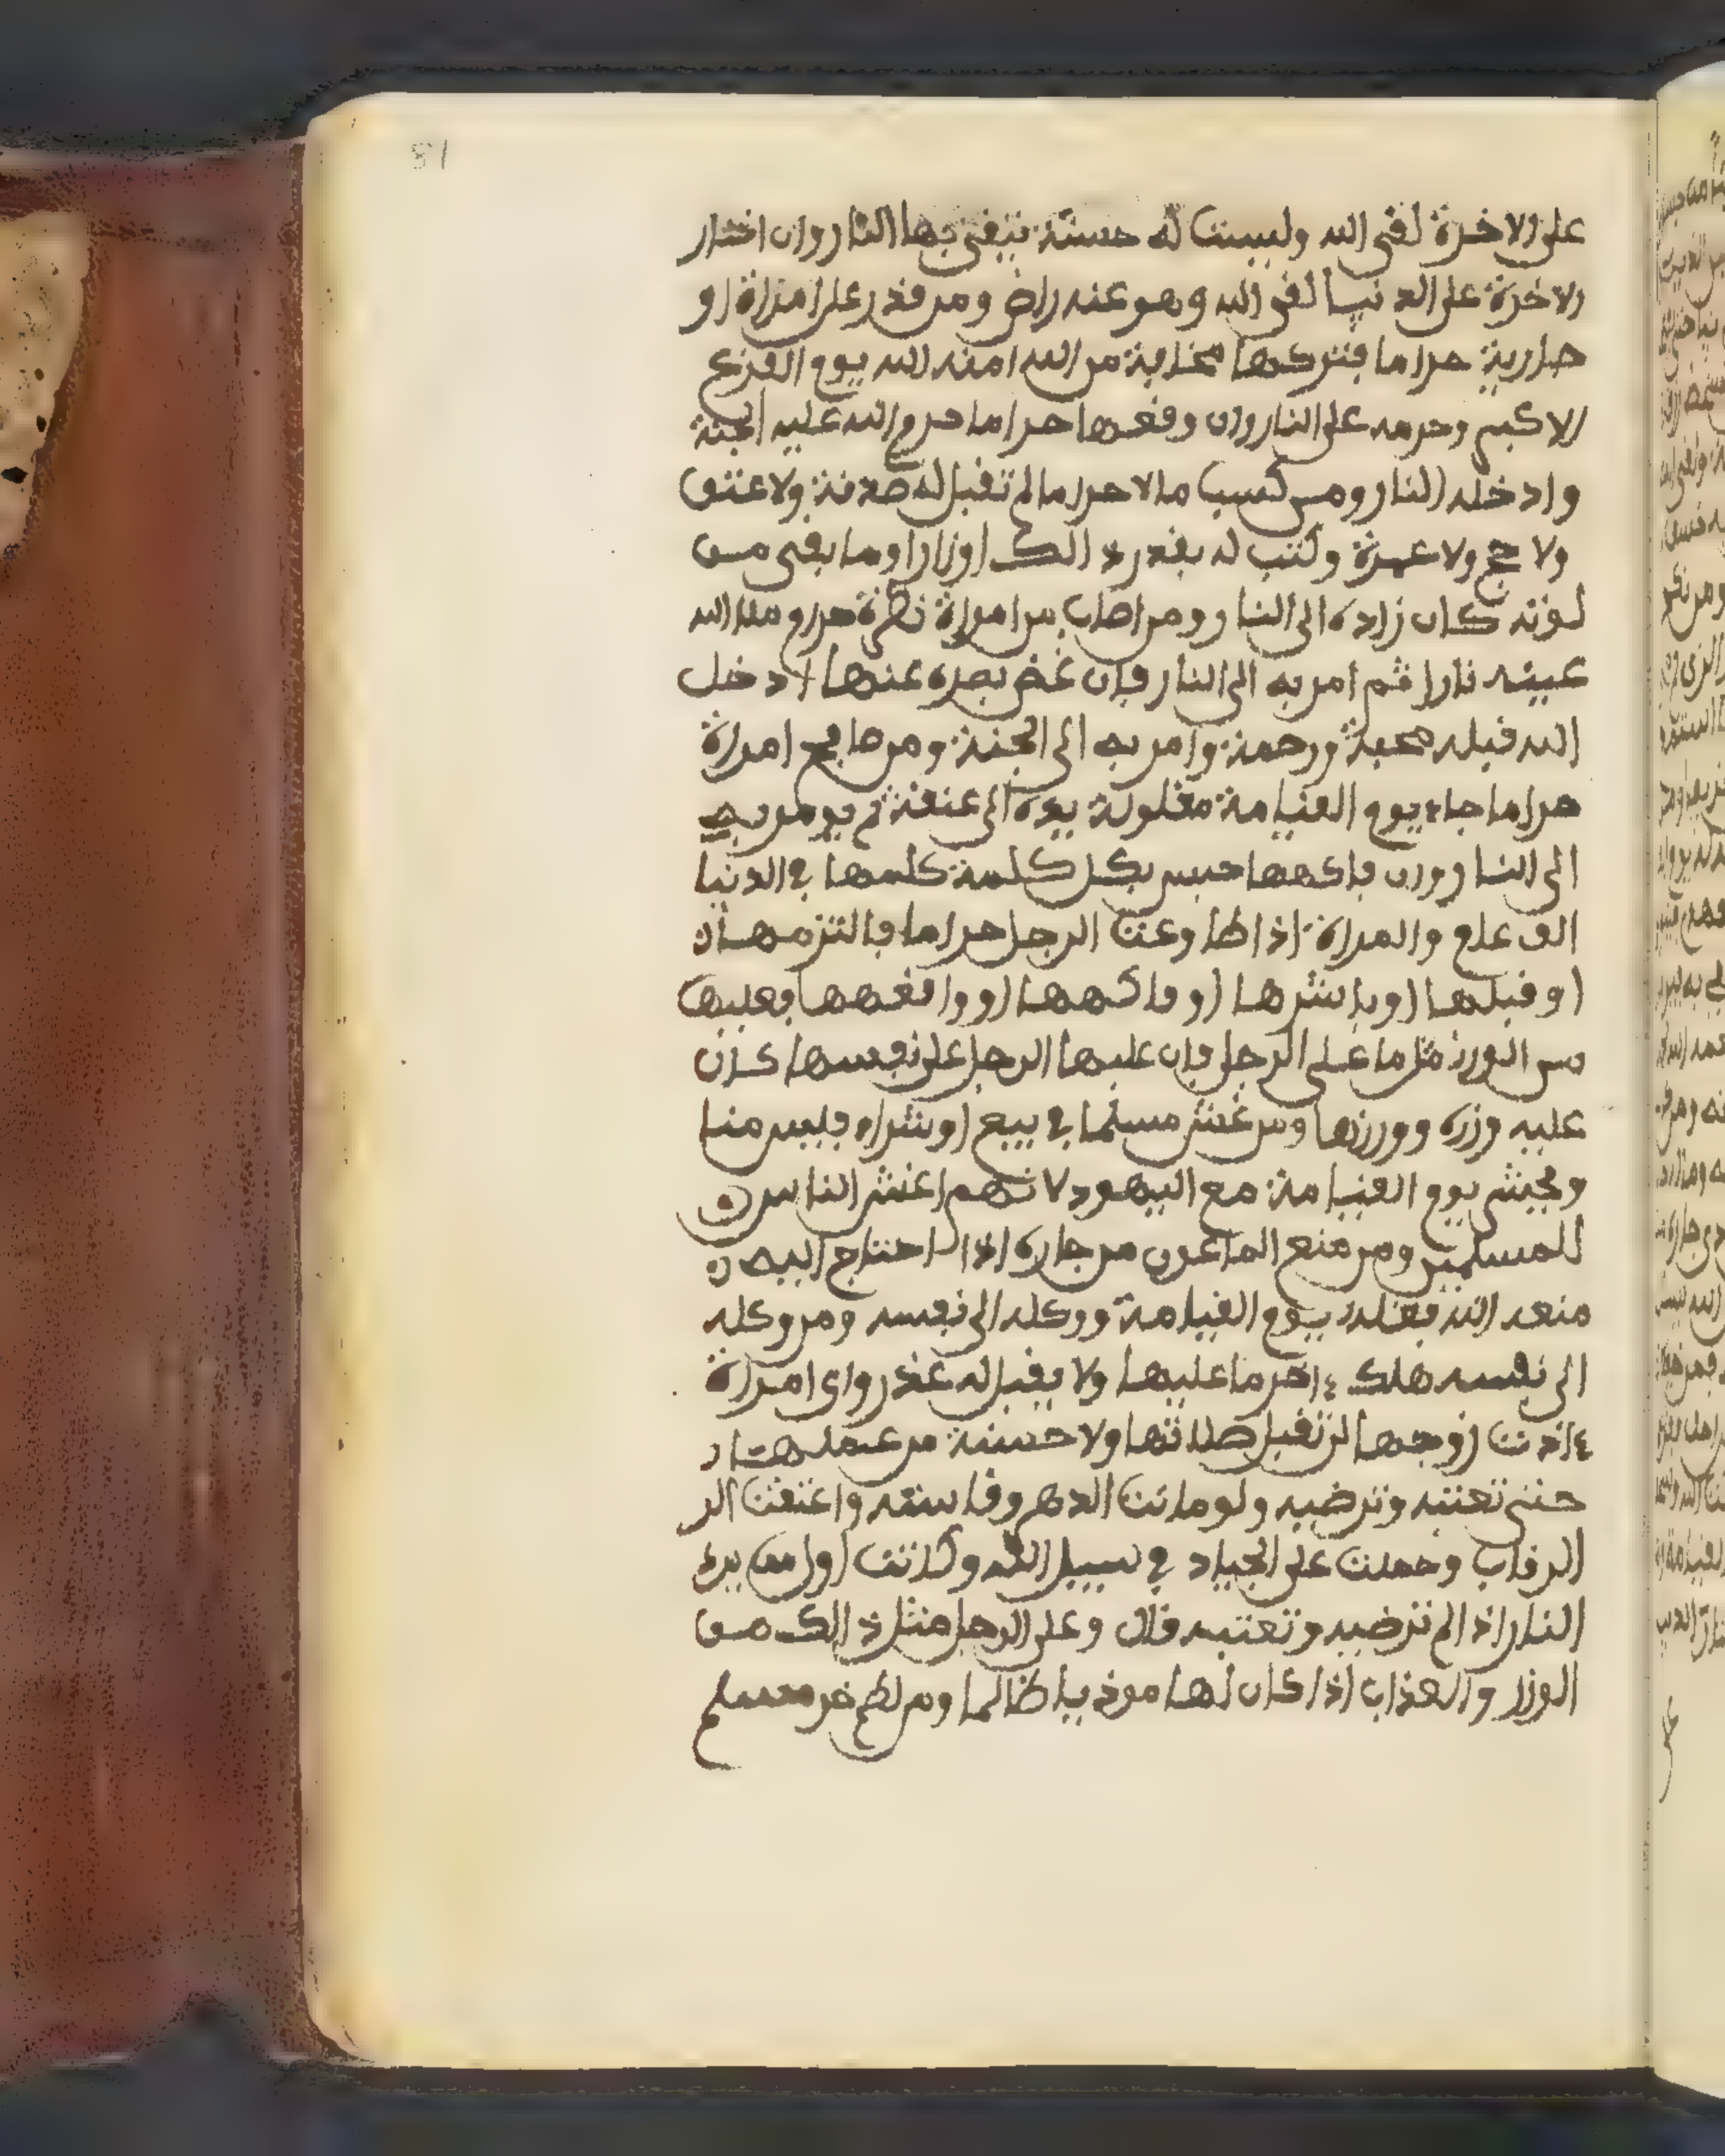 81
على الاخرة لقى الله وليست له حسنة يتقى بها النار وان اختار
الاخرة على الدنيا لقى الله وهو عنه راض ومن قدر على امراة او
جارية حراما فتركها مخافة من الله امنه الله يوم الفزع
الاكبر وحرمه على النار وان وقعها حراما حرم الله عليه الجنة
وادخله النار ومن كسب مالا حراما لم تقبل له صدقة ولا عتق
ولا حج ولا عمرة وكتب له بقدر ذالك اوزارا وما بقى من
لوته كان زاده الى النار ومن اصاب من امراة نظرة حراما ملا الله
عينه نارا ثم امر به الى النار فان غض بصره عنها ادخل
الله قبله محبة ورحمة وامر به الى الجنة ومن صافح امراة
حراما جاء يوم القيامة مغلولة يده الى عنقه ثم يومر به
الى النار وان فاكهها حبس بكل كلمة كلمها في الدنيا
الف عام والمراة اذا طاوعت الرجل حراما فالتزمها
او قبلها او باشرها او فاكهها او واقعها فعليها
من الوزر مثل ما على الرجل فان غلبها الرجل على نفسها كان
عليه وزره ووزرها ومن غش مسلما في بيع او شراء فليس منا
ويحشر يوم القيامة مع اليهود لانهم اغش الناس
للمسلمين ومن منع الماعون من جاره اذا احتاج اليه
منعه الله فضله يوم القيامة ووكله الى نفسه ومن وكله
الى نفسه هلك ءاخر ما عليها ولا يقبل له عذر واى امراة
ءاذت زوجها لم تقبل صلاتها ولا حسنة من عملها
حتى تعتبه وترضيه ولو صامت الدهر وقامته واعتقت الر
الرقاب وحملت على الجياد في سبيل الله وكانت اول من يرد
النار اذا لم ترضيه وتعتبه قال وعلى الرجل مثل ذالك من
الوزر والعذاب اذا كان لها موذيا ظالما ومن لطم خد مسلم